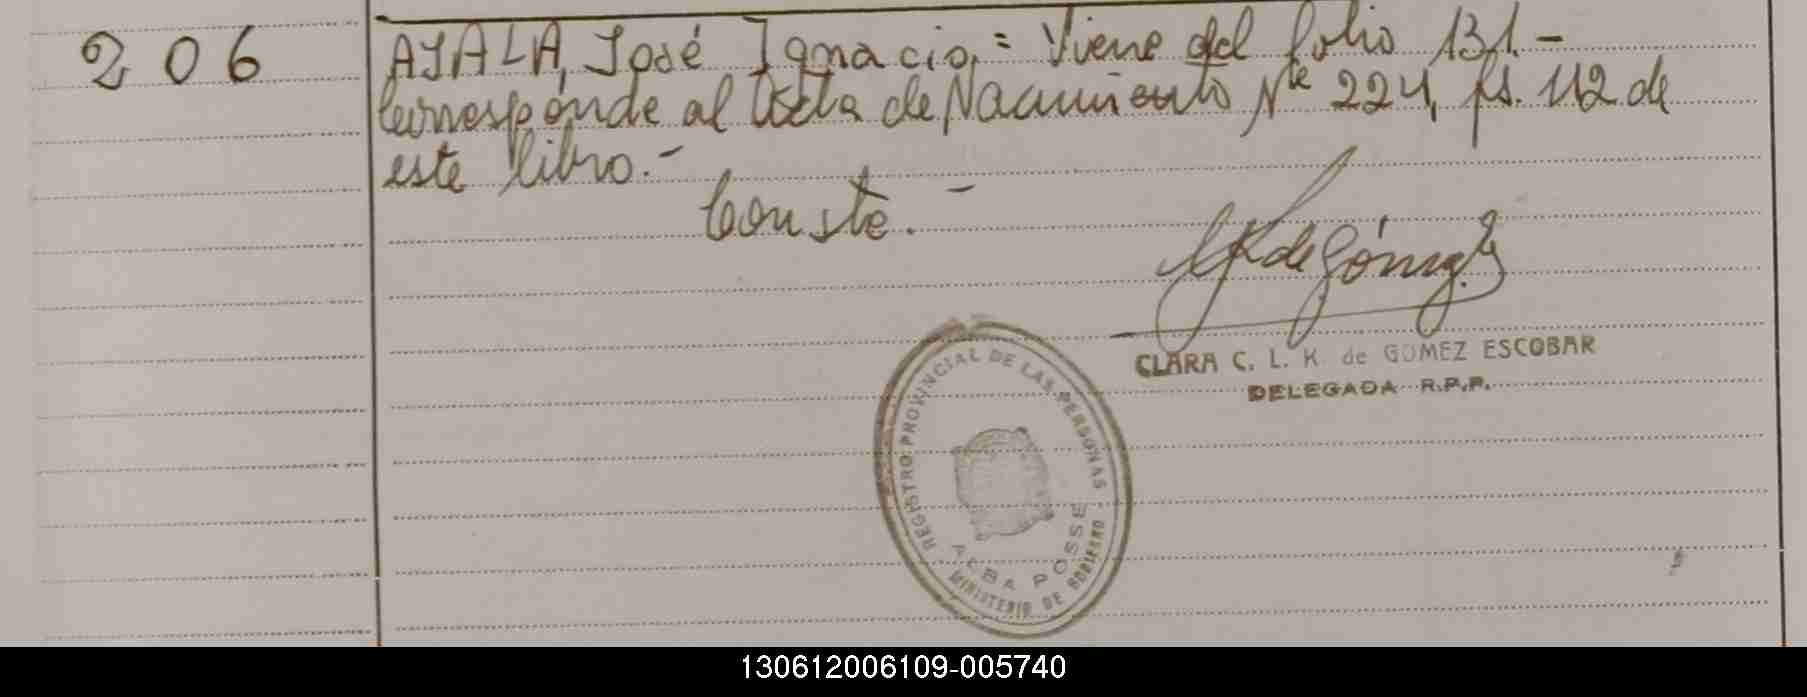 206
AYALA, José Ignacio.= Viene del folio 131.-
Corresponde al Acta de Nacimiento Nº 224, fs. 112 de
este libro.-
Conste.-
K de Gómez
CLARA C. L. K. de GOMEZ ESCOBAR
DELEGADA R.P.P.
REGISTRO PROVINCIAL DE LAS PERSONAS
ALBA POSSE
MINISTERIO DE GOBIERNO
130612006109-005740